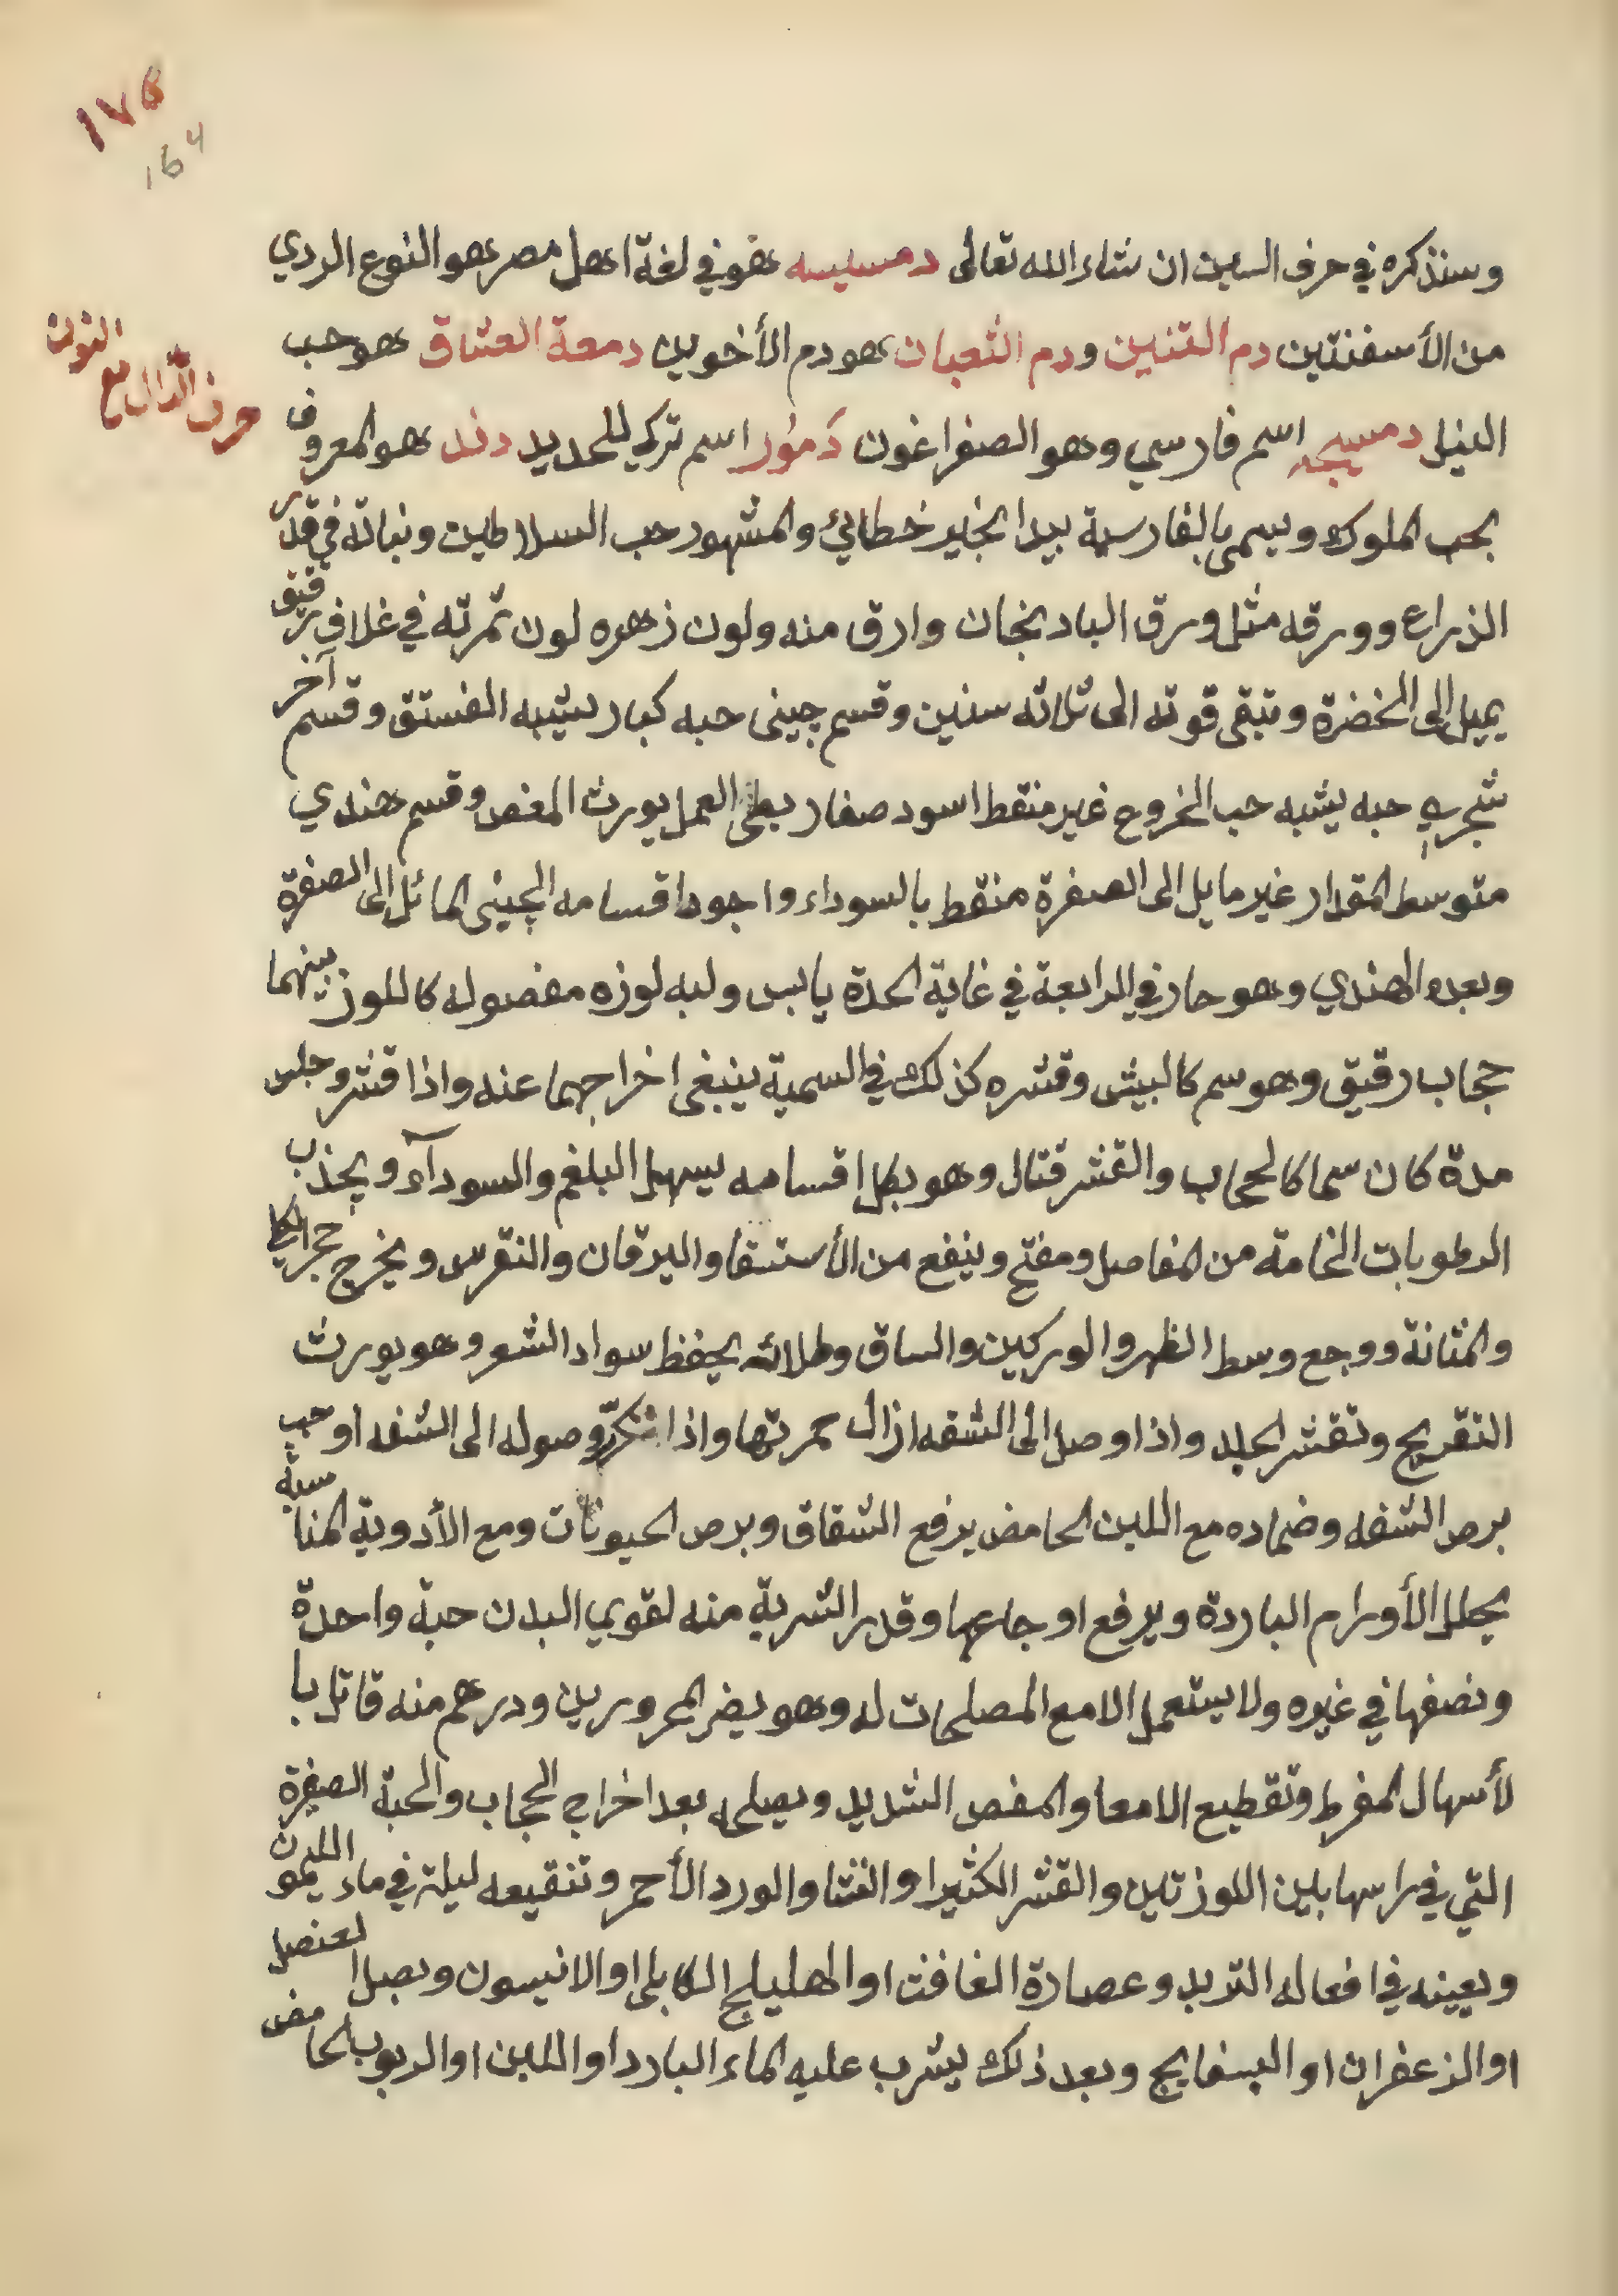 ١٧٥
164
وسنذكره في حرف السين ان شاء الله تعالى دمسيسه هو في لغة اهل مصر هو النوع الردي
من الأسفنتين دم التنين ودم الثعبان هو دم الأخوين دمعة العشاق هو حب
حرف الدال مع النون
النيل دمسيجه اسم فارسي وهو الصفراغون دَمُور اسم تركي للحديد دند هو المعروف
بحب الملوك ويسمى بالفارسية بيدانجير خطائي والمشهور حب السلاطين ونباته في قدر
الذراع وورقه مثل ورق البادنجان وارق منه ولون زهره لون ثمرته في غلاف رقيق
يميل الى الخضرة وتبقى قوته الى ثلاثه سنين وقسم چينى حبه كبار يشبه الفستق وقسم آخر
شجري حبه يشبه حب الخروع غير منقط اسود صغار بطئ العمل يورث المغص وقسم هندي
متوسط المقدار غير مايل الى الصفرة منقط بالسوداء واجود اقسامه الچينى المائل الى الصفرة
وبعده الهندي وهو حار في الرابعة في غاية الحدة يابس ولبه لوزه مفصوله كاللوز بينهما
حجاب رقيق وهو سم كالبيش وقشره كذلك في السمية ينبغى اخراجهما عنه واذا قشر وجلس
مدة كان سما كالحجاب والقشر قتال وهو بكل اقسامه يسهل البلغم والسودآء ويجذب
الرطوبات الخامة من المفاصل ومفتح وينفع من الأستسقا واليرقان والنقرس ويخرج حجر الكلى
والمثانة ووجع وسط الظهر والوركين والساق وطلائه يحفظ سواد الشعر وهو يورث
التقريح وتقشر الجلد واذا وصل الى الشفه ازال حمرتها واذا تكرّر وصوله الى الشفه اوجب
برص الشفه وضماده مع اللبن الحامض يرفع الشقاق وبرص الحيونات ومع الأدوية المناسبة
يحلل الأورام الباردة ويرفع اوجاعها وقدر الشربة منه لقوي البدن حبة واحدة
ونصفها في غيره ولا يستعمل الا مع المصلحات له وهو يضر المحرورين ودرهم منه قاتل با
لأسهال المفرط وتقطيع الامعا والمغص الشديد ويصلحه بعد اخراج الحجاب والحبة الصغيرة
التي في راسها بين اللوزتين والقشر الكثيرا والنشا والورد الأحمر وتنقيعه ليلة في ماء الليمون
ويعينه في افعاله التربد وعصارة الغافث او الهليلج الكابلى او الانيسون وبصل العنصل
او الزعفران او البسفايج وبعد ذلك يشرب عليه الماء البارد او اللبن او الربوب الحامض